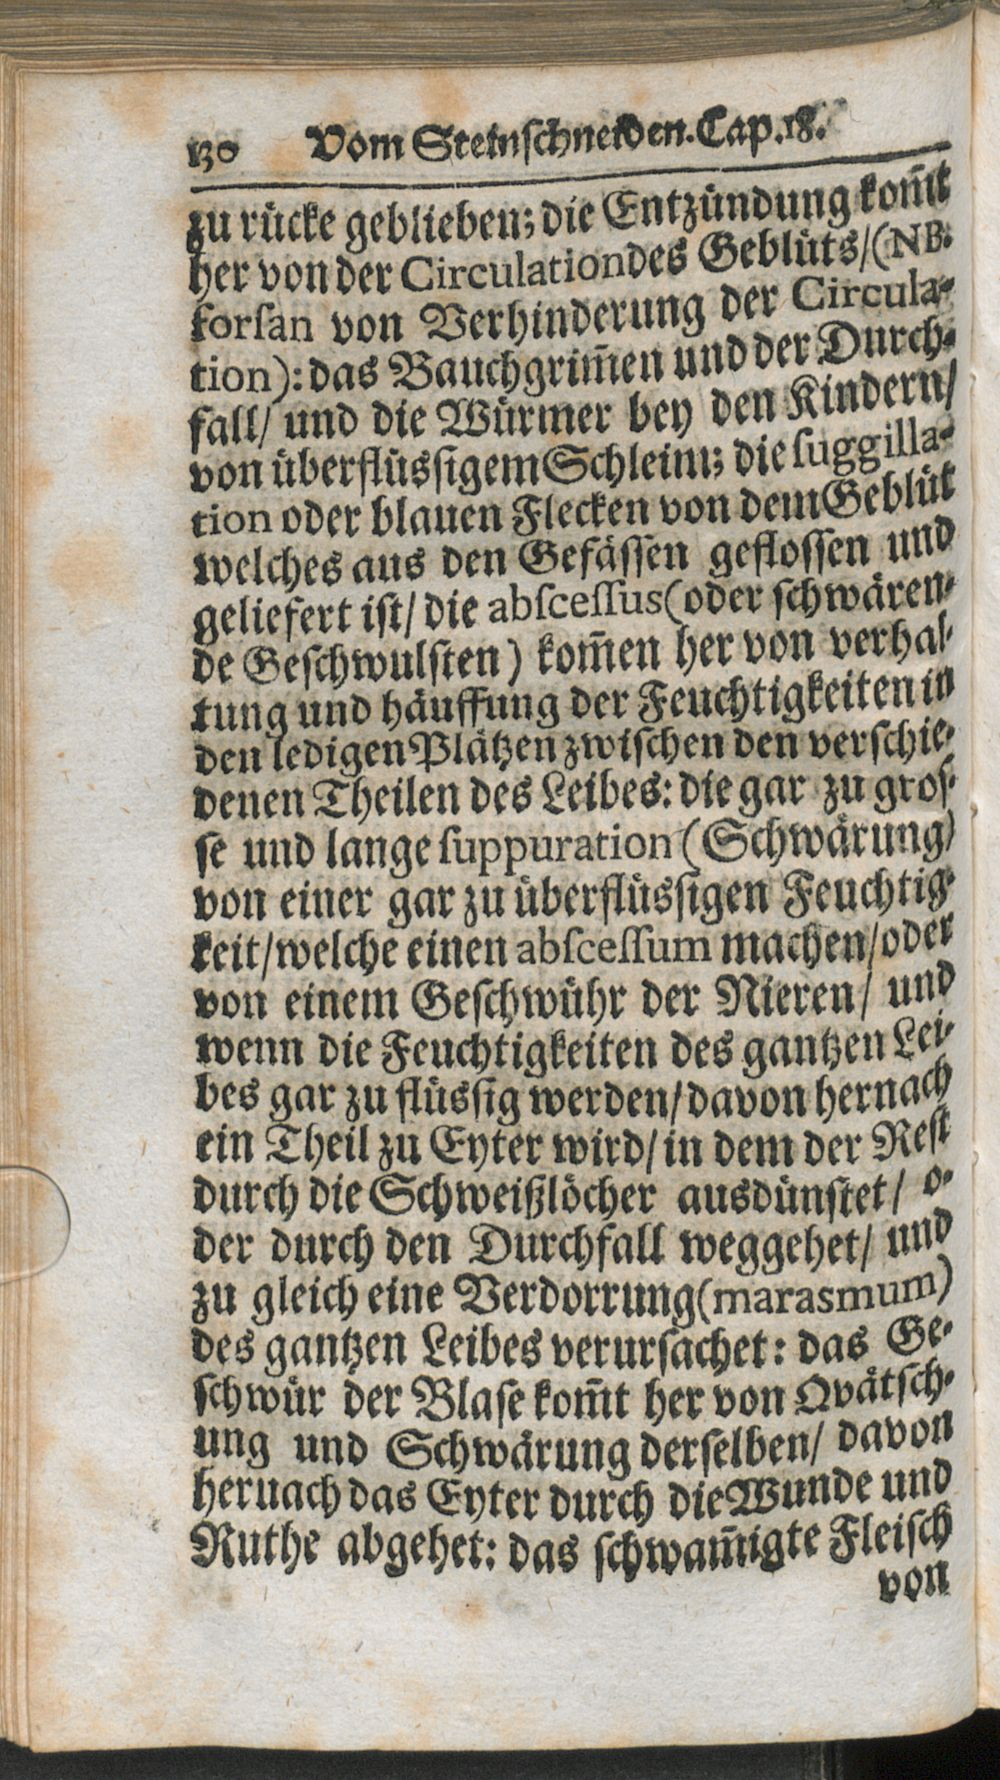 130 Vom Steinschneiden. Cap. 18.
zu rücke geblieben; die Entzündung kom̄t
her von der Circulation des Geblüts/ (NB.
forſan von Verhinderung der Circula-
tion): das Bauchgrim̄en und der Durch-
fall/ und die Würmer bey den Kindern/
von überflüssigem Schleim; die ſuggilla-
tion oder blauen Flecken von dem Geblüt
welches aus den Gefässen geflossen und
geliefert ist/ die abſceſſus (oder schwären-
de Geschwulsten) kom̄en her von verhal-
tung und häuffung der Feuchtigkeiten in
den ledigen Plätzen zwischen den verschie-
denen Theilen des Leibes: die gar zu gros-
se und lange ſuppuration (Schwärung)
von einer gar zu überflüssigen Feuchtig-
keit/ welche einen abſceſſum machen/ oder
von einem Geschwühr der Nieren/ und
wenn die Feuchtigkeiten des gantzen Lei-
bes gar zu flüssig werden/ davon hernach
ein Theil zu Eyter wird/ in dem der Rest
durch die Schweißlöcher ausdünstet/ o-
der durch den Durchfall weggehet/ und
zu gleich eine Verdorrung (marasmum)
des gantzen Leibes verursachet: das Ge-
schwür der Blase kom̄t her von Qvätsch-
ung und Schwärung derselben/ davon
hernach das Eyter durch die Wunde und
Ruthe abgehet: das schwam̄igte Fleisch
von